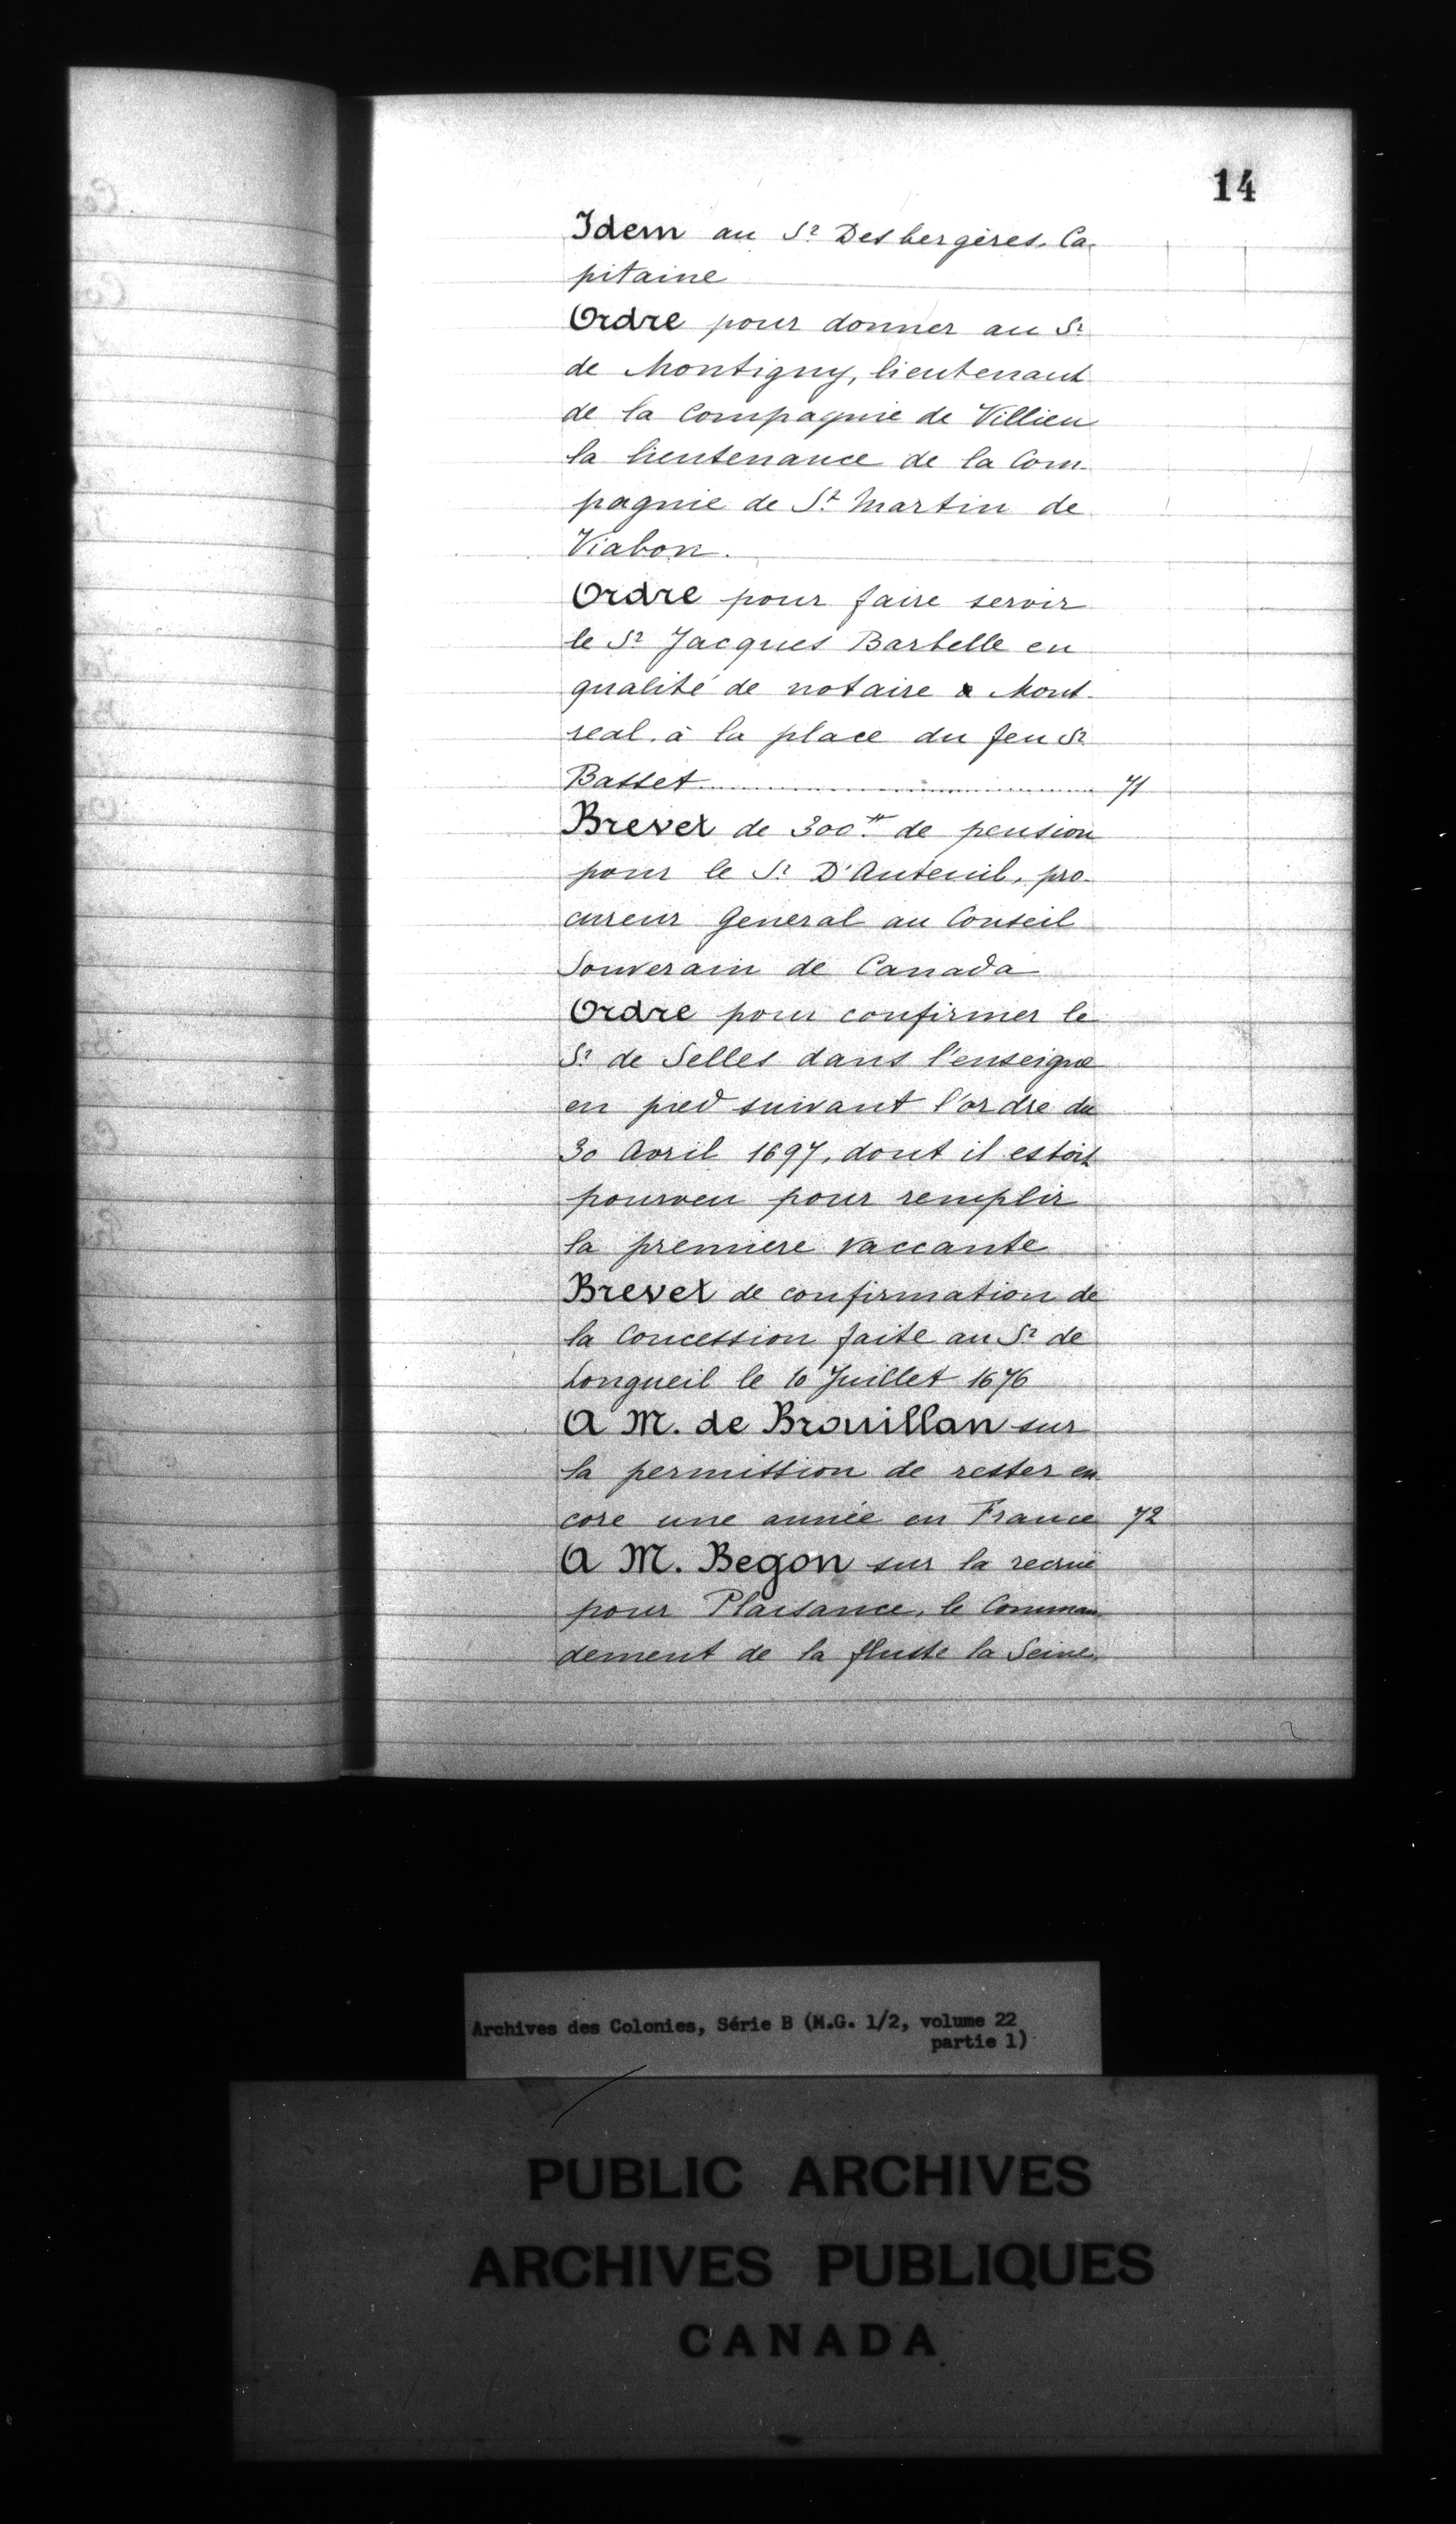 14
Idem au Sr Desbergères, Ca-
pitaine
Ordre pour donner au Sr
de Montigny, lieutenant
de la Compagnie de Villieu
la lieutenance de la Com-
pagnie de St Martin de
Viabon.
Ordre pour faire servir
le Sr Jacques Barbelle en
qualité de notaire a Mont-
real, à la place du feu Sr
Basset 71
Brevet de 300tt de pension
pour le Sr D'Auteuil, pro-
cureur General au Conseil
Souverain de Canada
Ordre pour confirmer le
Sr de Selles dans l'enseigne
en pied suivant l'ordre du
30 Avril 1697, dont il estoit
pourveu pour remplir
la premiere vaccante
Brevet de confirmation de
la Concession faite au Sr de
Longueil le 10 Juillet 1676
A M. de Brouillan sur
la permission de rester en
core une année en France 72
A M. Begon sur la recruë
pour Plaisance, le Comman
dement de la fluste la Seine,
Archives des Colonies, Série B (M.G. 1/2, volume 22
partie 1)
PUBLIC ARCHIVES
ARCHIVES PUBLIQUES
CANADA